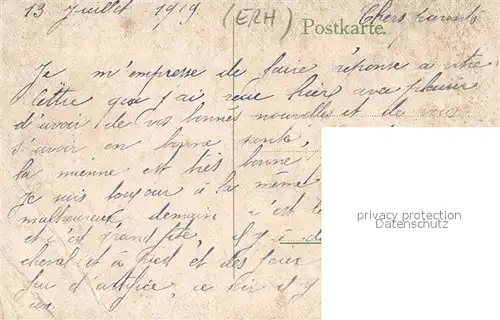 13 Juillet 1919 (ERH) Postkarte. Chers parents
Je m'empresse de faire réponse a vitre
lettre que j'ai reçue hier avec plaisir
d'avoir de vos bonnes nouvelles et de vous
s'avoir en bonne santé,
la mienne et très bonne
Je suis toujour à la même
malheureux demain c'est le
et c'est grand fête, il y à
cheval et a pied et des feux
feu d'artifice, ce soir il y
privacy protection
Datenschutz